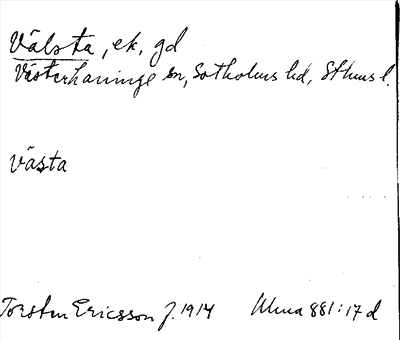 Välsta, ek, gd
Västerhaninge sn, Sotholms hd, Sthms l.
västa
Torsten Ericsson f. 1914 Ulma 881:17 d